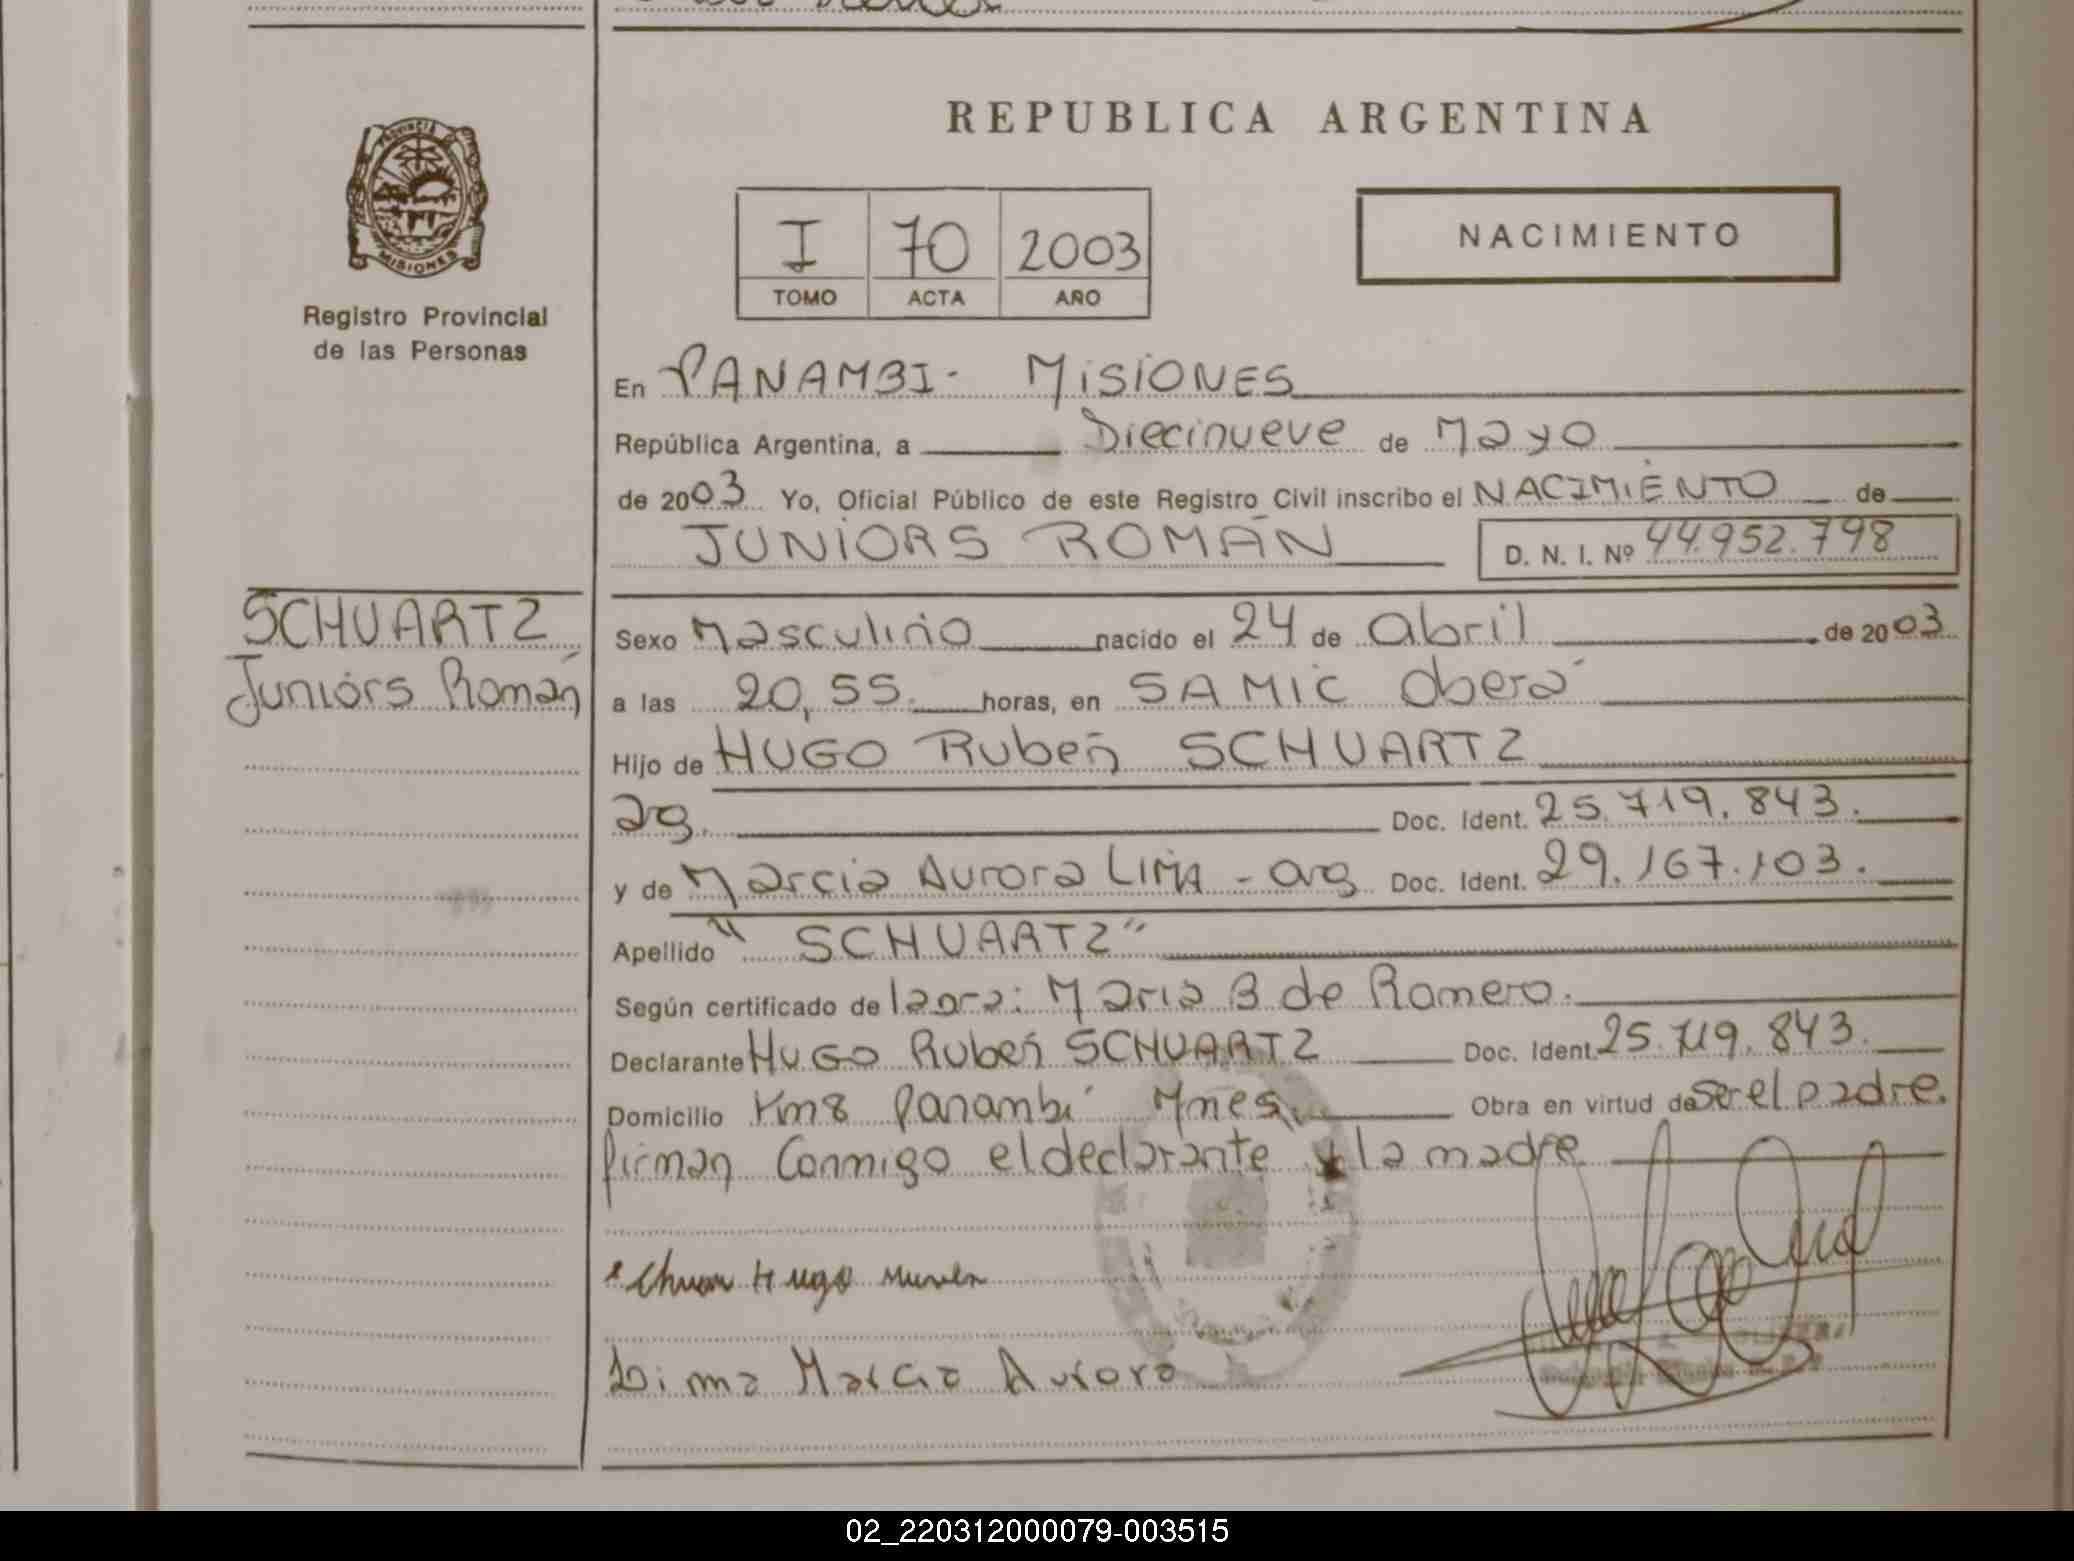 REPUBLICA ARGENTINA
PROVINCIA
MISIONES
Registro Provincial
de las Personas
I 70 2003
TOMO ACTA AÑO
NACIMIENTO
En PANAMBI - MISIONES
República Argentina, a Diecinueve de Mayo
de 2003 Yo, Oficial Público de este Registro Civil inscribo el NACIMIENTO de
JUNIORS ROMÁN D. N. I. Nº 44.952.798
SCHUARTZ
Juniórs Román
Sexo Masculino nacido el 24 de abril de 2003
a las 20,55. horas, en SAMIC Oberá
Hijo de HUGO Rubén SCHUARTZ
arg. Doc. Ident. 25.719.843.
y de Marcia Aurora LIMA - arg Doc. Ident. 29.167.103.
Apellido " SCHUARTZ"
Según certificado de la María B de Romero.
Declarante HUGO Rubén SCHUARTZ Doc. Ident. 25.719.843.
Domicilio Km8 Panambí Mnes. Obra en virtud de ser el padre.
firman Conmigo el declarante y la madre
Hugo
Lima Marcia Aurora
02_220312000079-003515